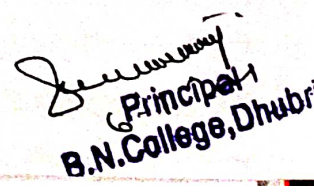 Principal
B.N.College,Dhubri